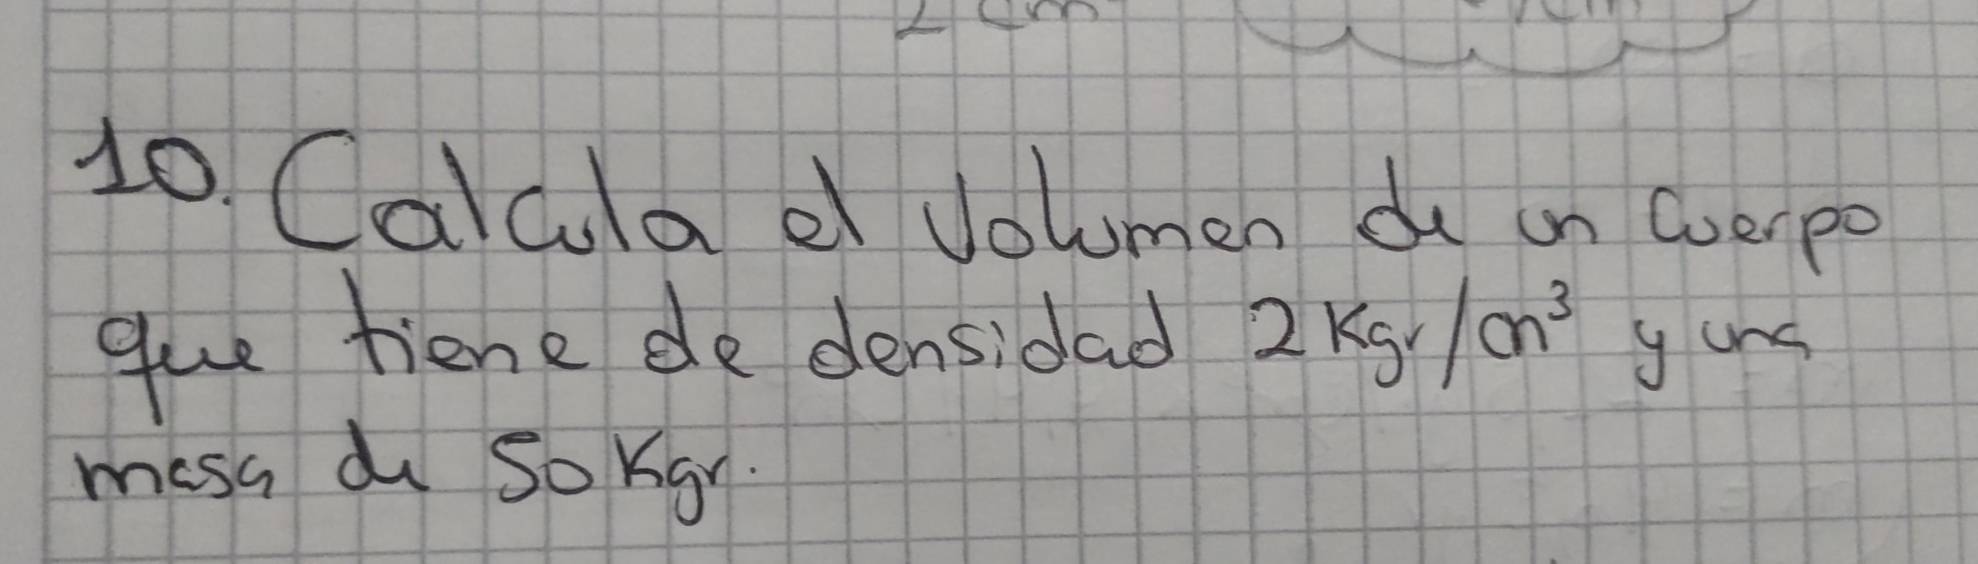 2 cm
10. Calcula el volumen de un cuerpo
que tiene de densidad 2 Kgr/cm³ y una
masa de 50 Kgr.